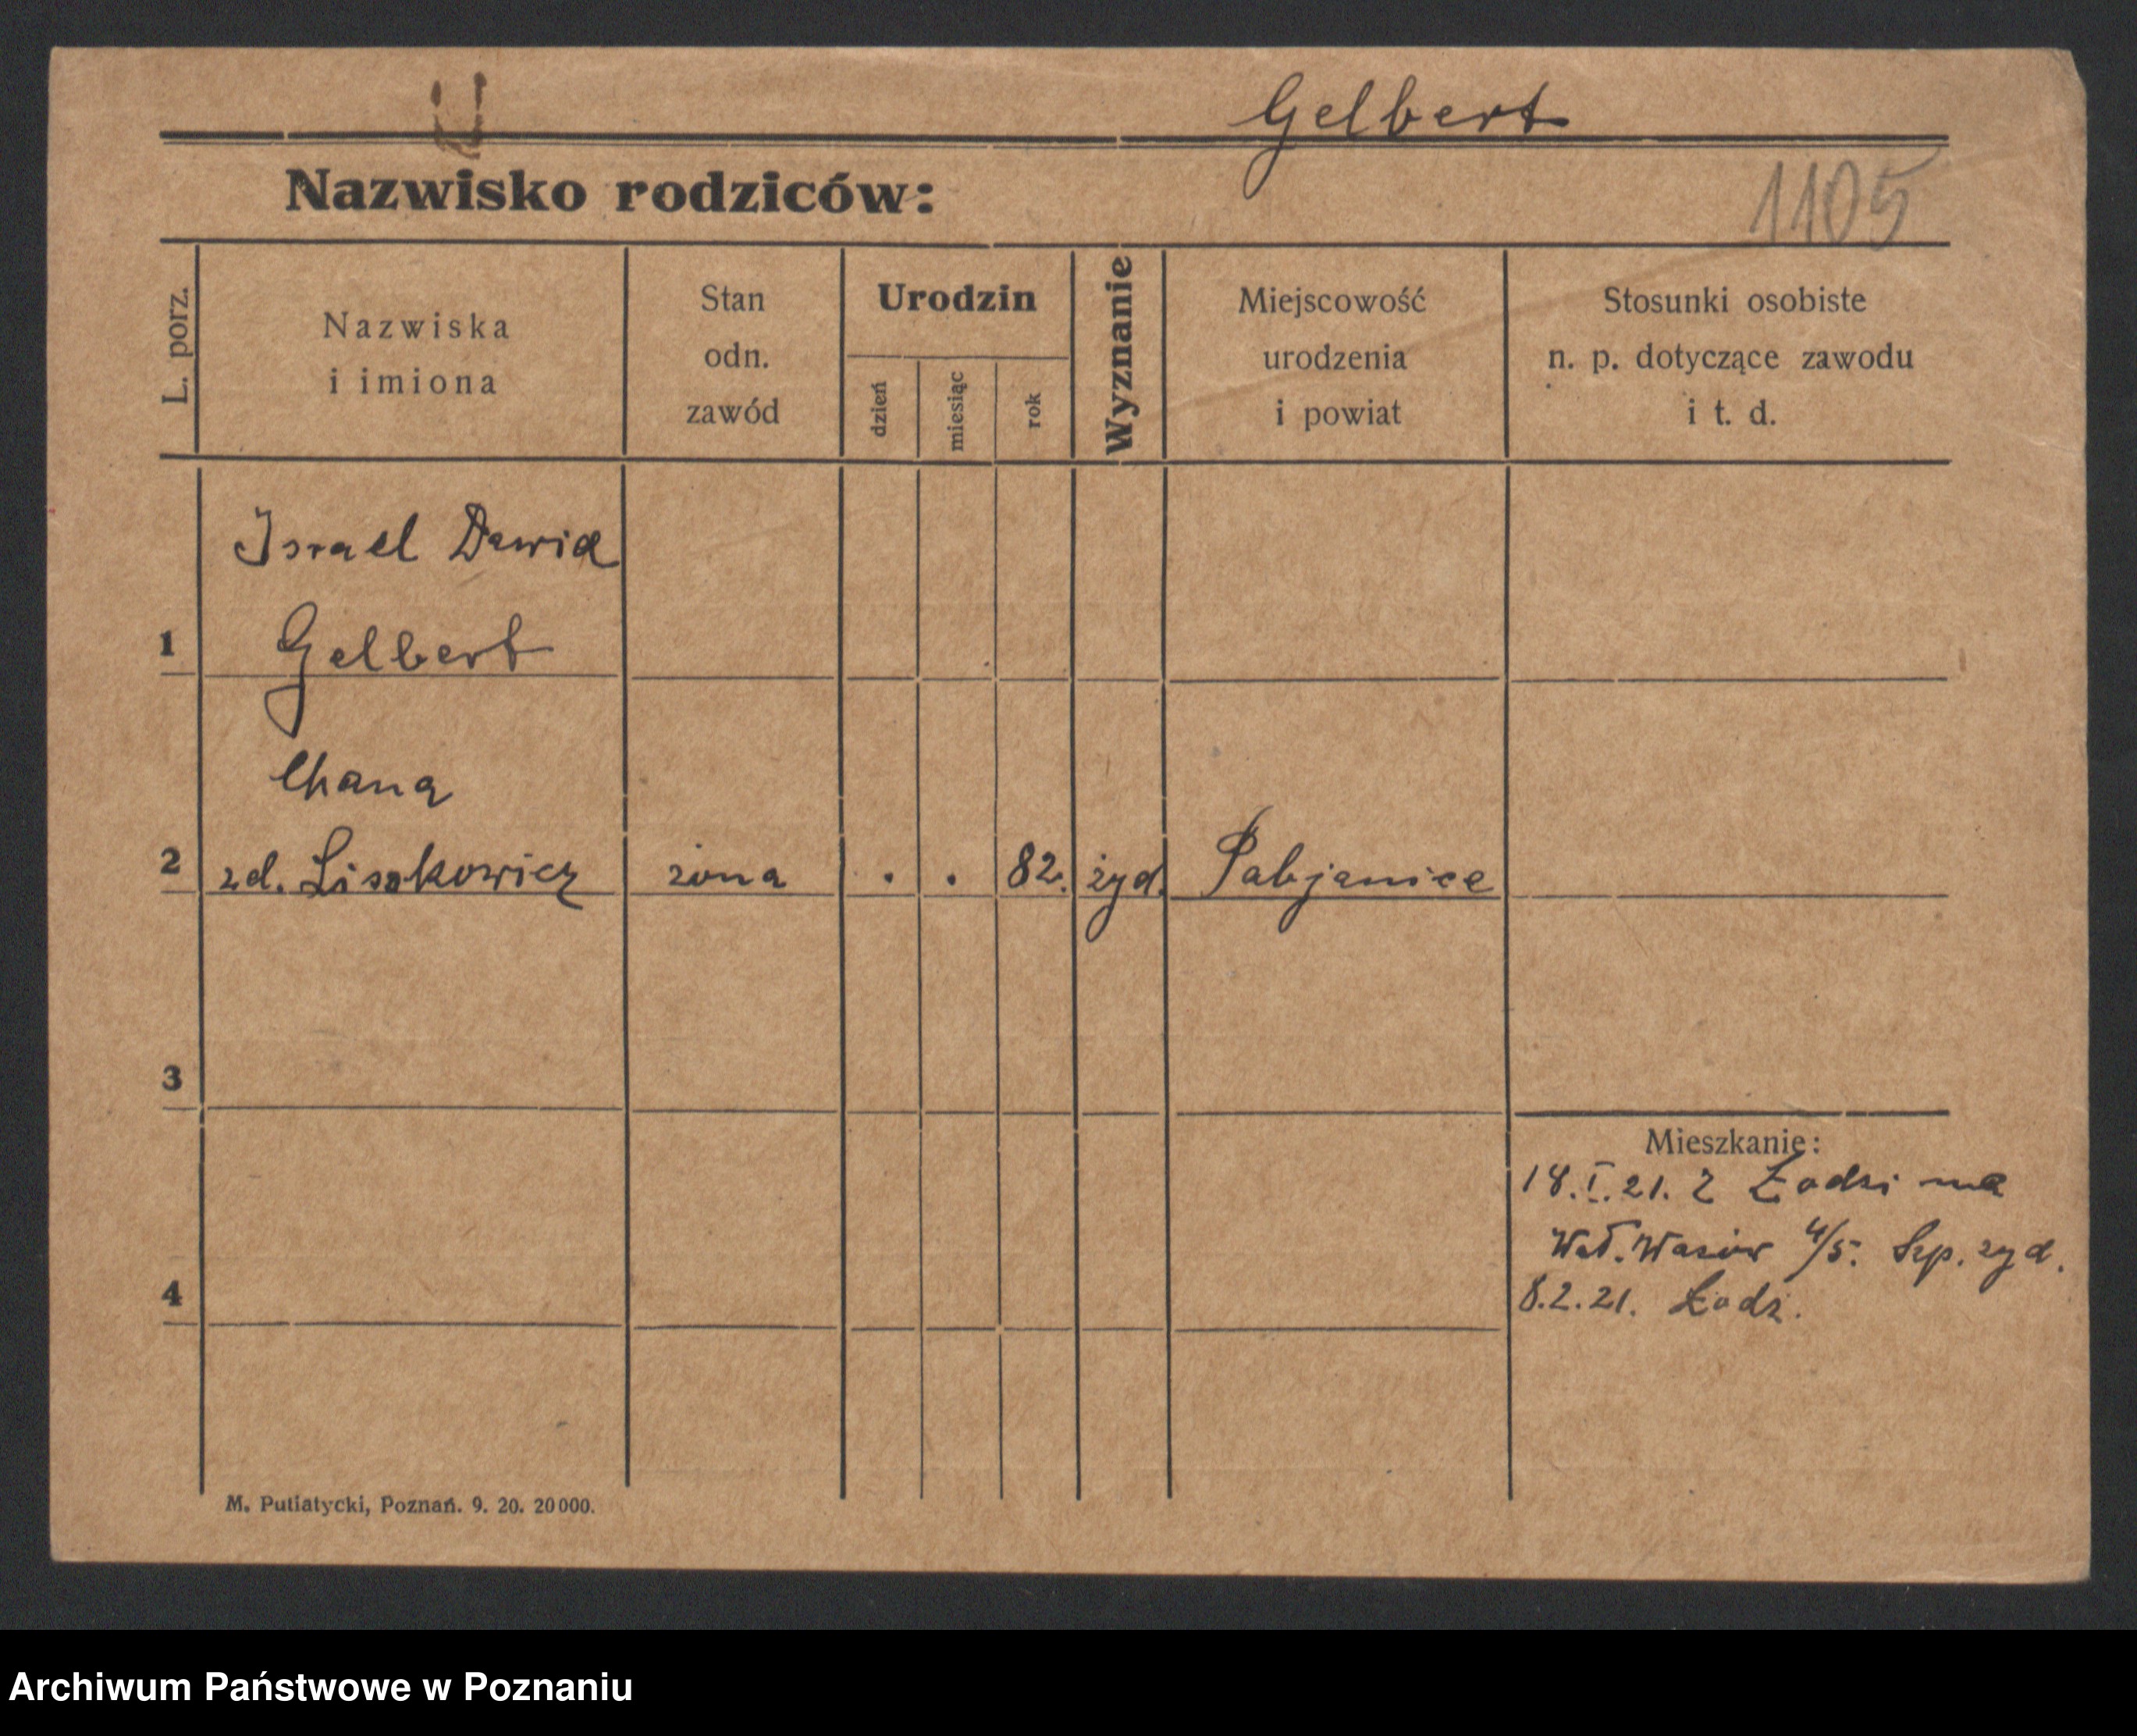 Gelbert
Nazwisko rodziców:
1105
L. porz.
Nazwiska
i imiona
Stan
odn.
zawód
Urodzin
dzień
miesiąc
rok
Wyznanie
Miejscowość
urodzenia
i powiat
Stosunki osobiste
n. p. dotyczące zawodu
i t. d.
Israel Dawid
1 Gelbert
Chana
2 zd. żona . . 82. żyd. Pabjanice
3
Mieszkanie:
18.I.21. Z Łodzi na
Wał. 4/5. Szp. zyd.
4 8.2.21. Łodz.
M. Putiatycki, Poznań. 9. 20. 20000.
Archiwum Państwowe w Poznaniu